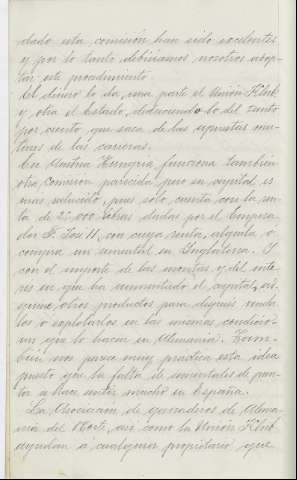 dado esta comisión han sido excelentes
y por lo tanto debiéramos nosotros adop-
tar este procedimiento.
El dinero lo da, una parte el Unión Klub
y otra el Estado, deduciendo lo del tanto
por ciento que saca de las apuestas mu-
tuas de las carreras.
En Austria Hungria funciona también
otra Comisión parecida pero su capital es
mas reducido, pues solo cuenta con la su-
ma de libras dadas por el Empera-
dor F. José II, con cuya renta, alquila o
compra un semental en Inglaterra. Y
con el importe de las montas y del inte-
res en que ha aumentado el capital, ad-
quiere, otros productos para despues vender
los o explotarlos en las mismas condicio-
nes que lo hacen en Alemania. Tam-
bién nos parece muy practica esta idea
puesto que la falta de sementales de pun-
ta se hace sentir mucho en España.
La Asociacion de ganaderos de Alema-
nia del Norte, asi como la Unión Klub
ayudan á cualquier propietario que